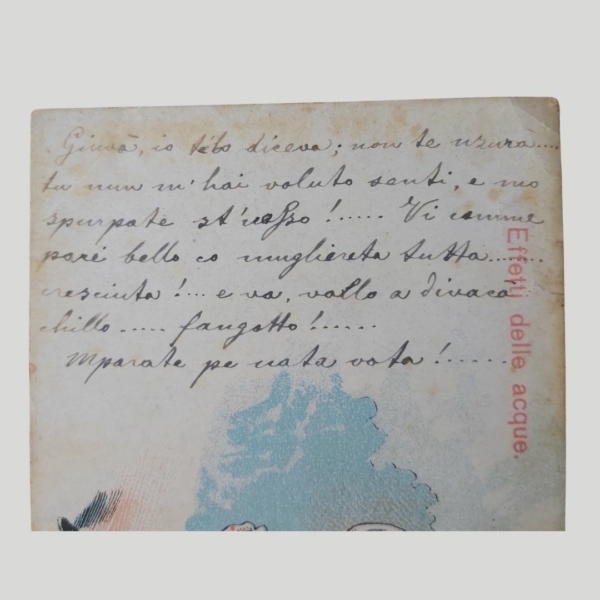 Giuvà, io t'ebo diceva; non te nzurà....
tu nun m'hai voluto senti, e mo
spurpate st'uosso!..... Vi comme
pare bello co mugliereta tutta.......
cresciuta!... e va, vallo a divacà
chillo..... fangotto!......
Mparate pe nata vota!......
Effetti delle acque.